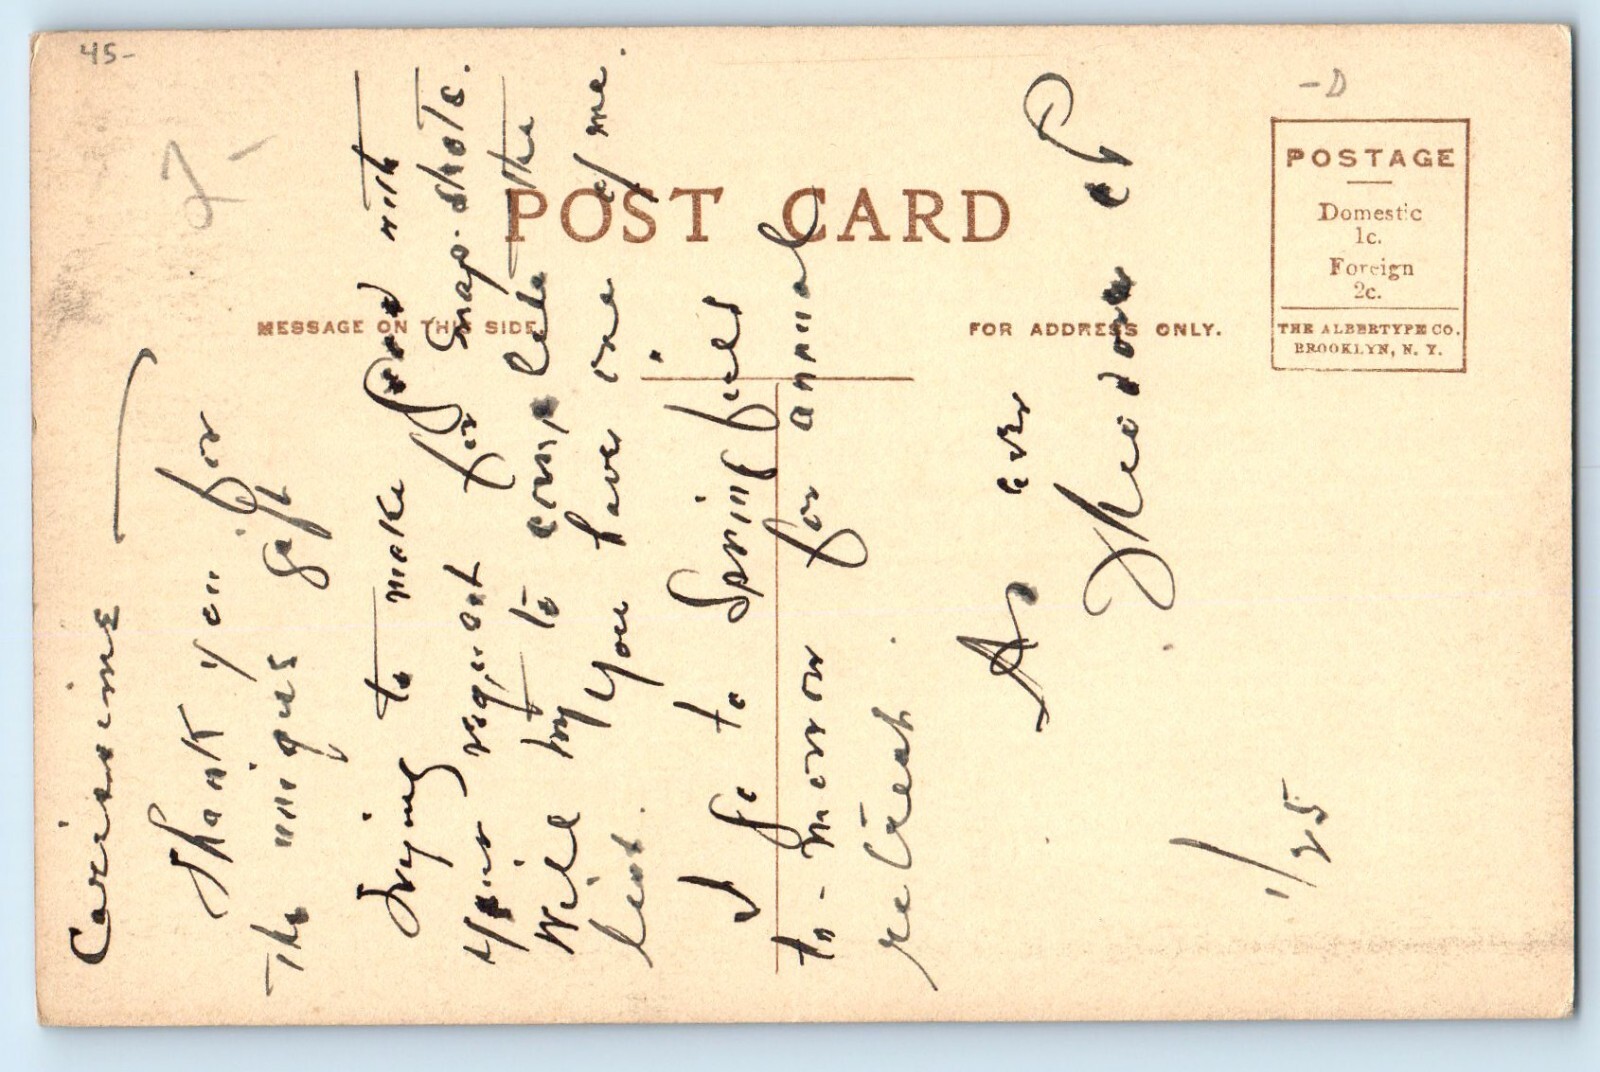 45-
-D
POST CARD
MESSAGE ON THIS SIDE
FOR ADDRESS ONLY.
POSTAGE
Domestic
1c.
Foreign
2c.
THE ALBERTYPE CO.
BROOKLYN, N. Y.
Carissime
Thank you for
The unique gift
Trying to make good with
your request for Snap-shots.
Will try to complete the
list. You have one of me.
I go to Springfield
to-morrow for annual
retreat.
As ever
Theodore CP
1/25